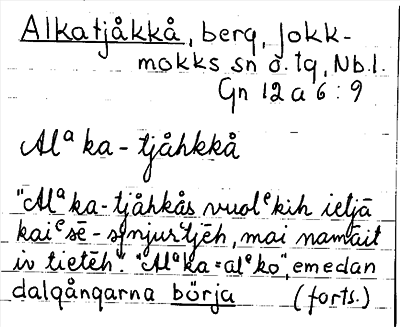 Alkatjåkkå, berg, Jokk-
mokks sn o. tg, Nb.l.
Gn 12 a 6 : 9
Alᵃka-tjåhkkå
"Alᵃka-tjåhkås vuolᵉkih ietjā
kaiᵉsē- njurᵗjēh, mai namāit
iv tietēh." "Alᵃka = alᵉko", emedan
dalgångarna börja (forts.)